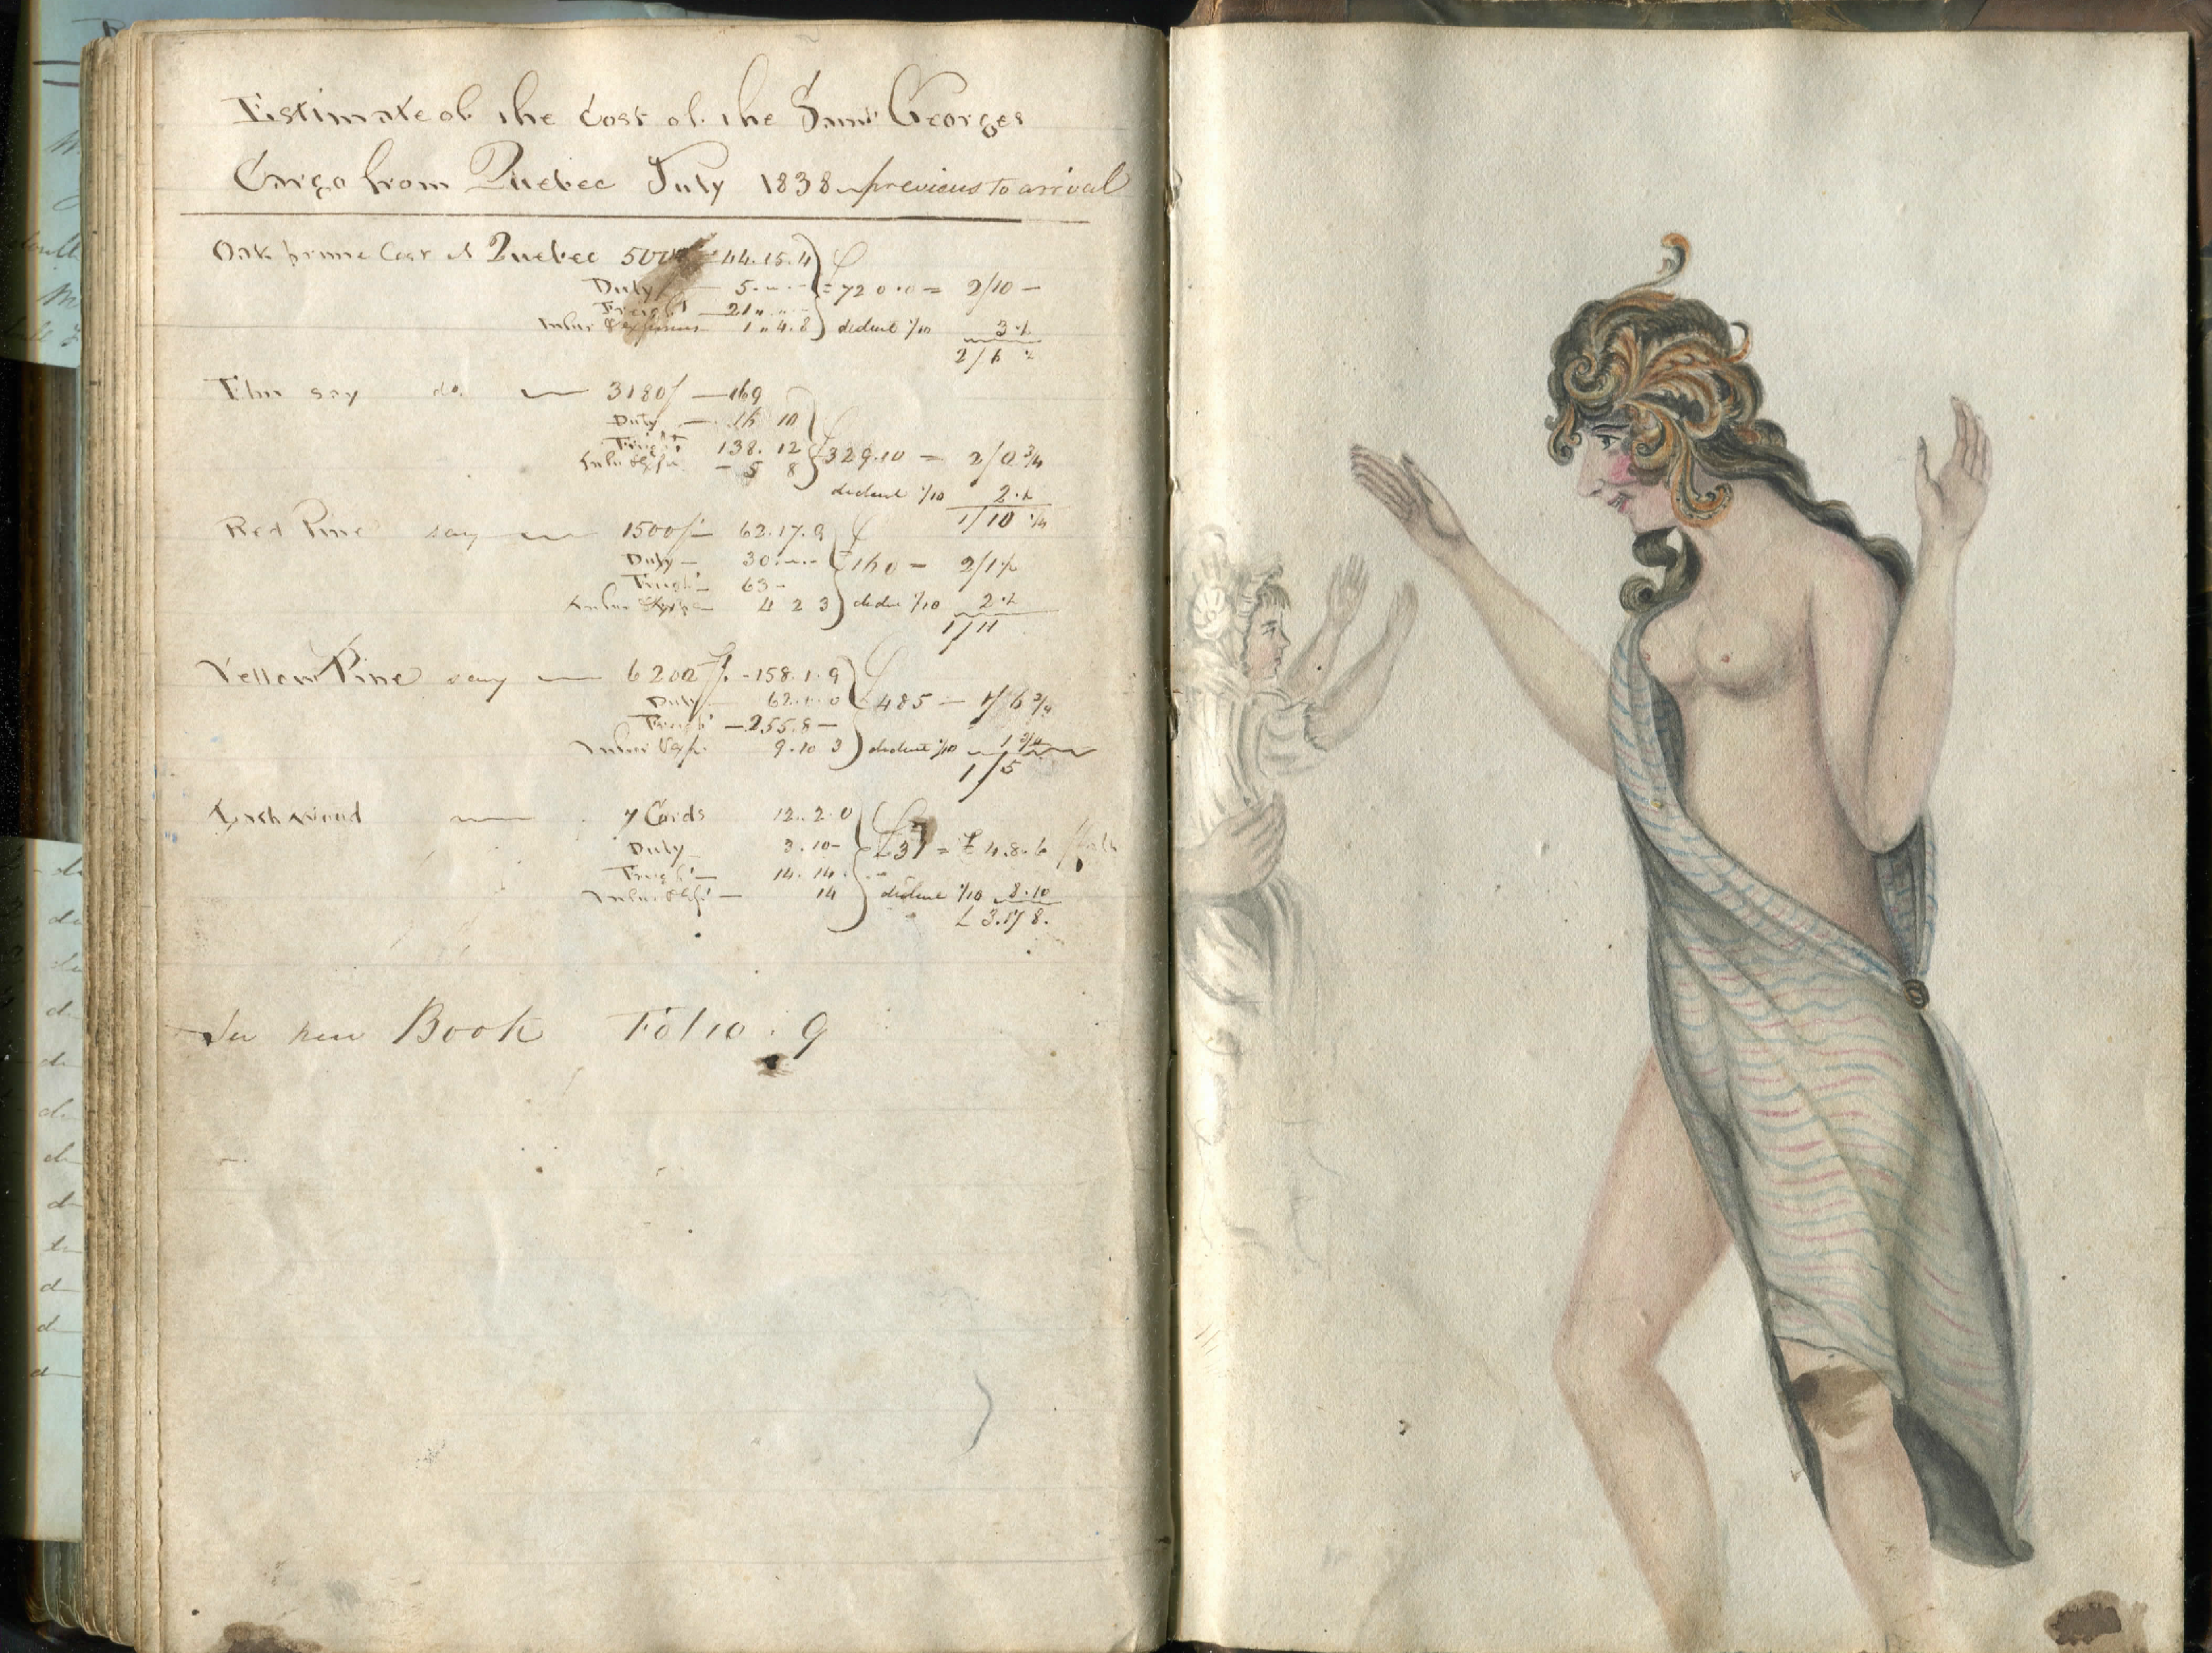 Estimate of the Cost of the Saint Georges
Cargo from Quebec July 1838 previous to arrival
Oak prime Cost at Quebec 500 44.15.4
Duty 5 = 72 0.0 = 2/10 -
Freight 21
Insur & expenses 1 " 4.8 deduct 1/10 3 ½
2/6 ½
Elm say do 3180f - 169
Duty - 16 10
Freight 138. 12 £329.10 = 2/0 ¾
- 5 8
deduct 1/10 2 ½
1/10 ¼
Red Pine say 1500f - 62.17.9
Duty - 30 £160 - 2/1½
Freight - 63 -
Insur & Exps 4 2 3 dedu 1/10 2 ½
1/11
Yellow Pine say 6200 f. - 158.1.9
Duty 62.0.0 £485 - 1/6 ¾
Freight - 255.8 -
Insur & Exps. 9.10 3 deduct 1/10 1 ¾
1/5
Lathwood 7 Cords 12.2.0
Duty 3.10 - £31 = £4.8.6
Freight - 14.14.
Insur & Exps - 14 deduct 1/10 8.10
£3.19 8.
See new Book Folio. 9